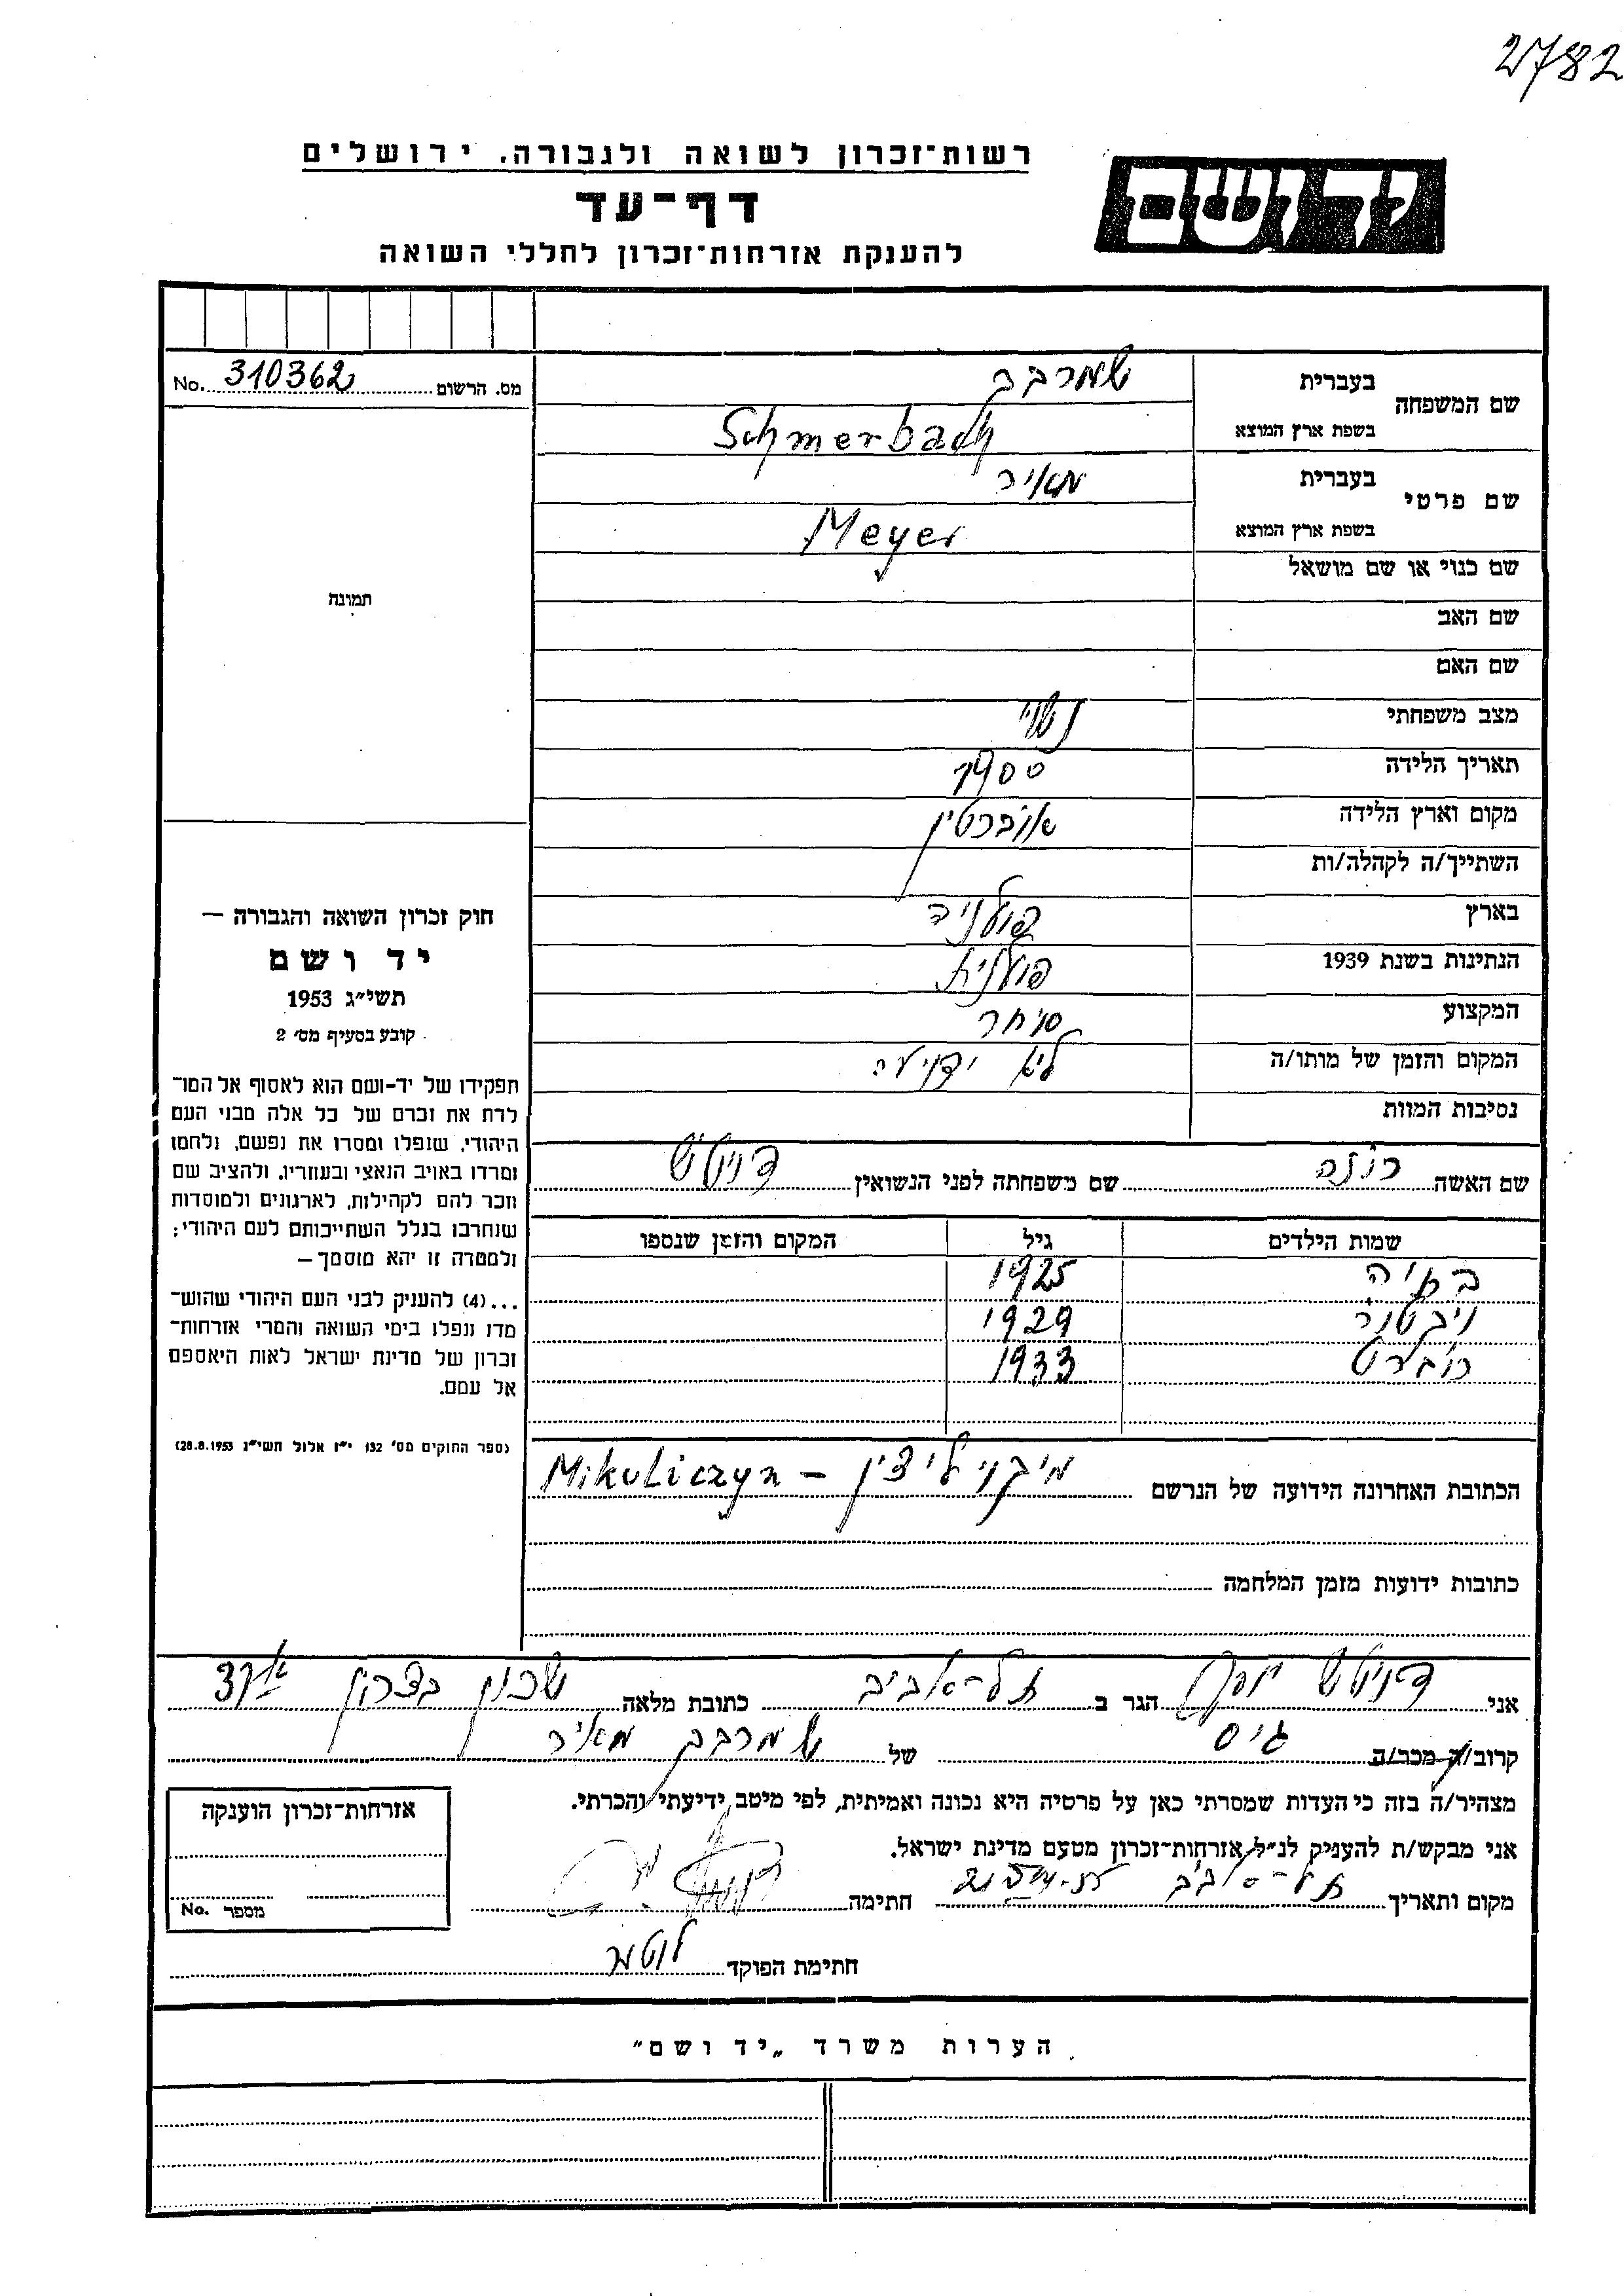 2782
רשות־זכרון לשואה ולגבורה, ירושלים
יד ושם
דף־עד
להענקת אזרחות־זכרון לחללי השואה
שם המשפחה בעברית שמרבך
בשפת ארץ המוצא Schmerbach
מס. הרשום 310362 No.
שם פרטי בעברית מאיר
בשפת ארץ המוצא Meyer
שם כנוי או שם מושאל
תמונה
שם האב
שם האם
מצב משפחתי נשוי
תאריך הלידה 1900
מקום וארץ הלידה אוברטין
השתייך/ה לקהלה/ות
בארץ פולניה
הנתינות בשנת 1939 פולנית
המקצוע סוחר
המקום והזמן של מותו/ה לא ידוע
נסיבות המוות
שם האשה רוזה שם משפחתה לפני הנשואין
שמות הילדים גיל המקום והזמן שנספו
1925
ויקטור 1929
רוברט 1933
הכתובת האחרונה הידועה של הנרשם מיקוליצ'ין – Mikuliczyn
כתובות ידועות מזמן המלחמה
חוק זכרון השואה והגבורה —
יד ושם
תשי״ג 1953
קובע בסעיף מס׳ 2
תפקידו של יד-ושם הוא לאסוף אל המו־
לדת את זכרם של כל אלה מבני העם
היהודי, שנפלו ומסרו את נפשם, נלחמו
ומרדו באויב הנאצי ובעוזריו, ולהציב שם
וזכר להם לקהילות, לארגונים ולמוסדות
שנחרבו בגלל השתייכותם לעם היהודי;
ולמטרה זו יהא מוסמך —
...(4) להעניק לבני העם היהודי שהוש־
מדו ונפלו בימי השואה והמרי אזרחות־
זכרון של מדינת ישראל לאות היאספם
אל עמם.
(ספר החוקים מס׳ 132 י״ז אלול תשי״ג 28.8.1953)
אני הגר ב תל-אביב כתובת מלאה שכון בצרון
קרוב/ה מכר/ה גיס של שמרבך מאיר
מצהיר/ה בזה כי העדות שמסרתי כאן על פרטיה היא נכונה ואמיתית, לפי מיטב ידיעתי והכרתי.
אני מבקש/ת להעניק לנ״ל אזרחות־זכרון מטעם מדינת ישראל.
מקום ותאריך תל-אביב חתימה
חתימת הפוקד
אזרחות־זכרון הוענקה
מספר No.
הערות משרד „יד ושם״